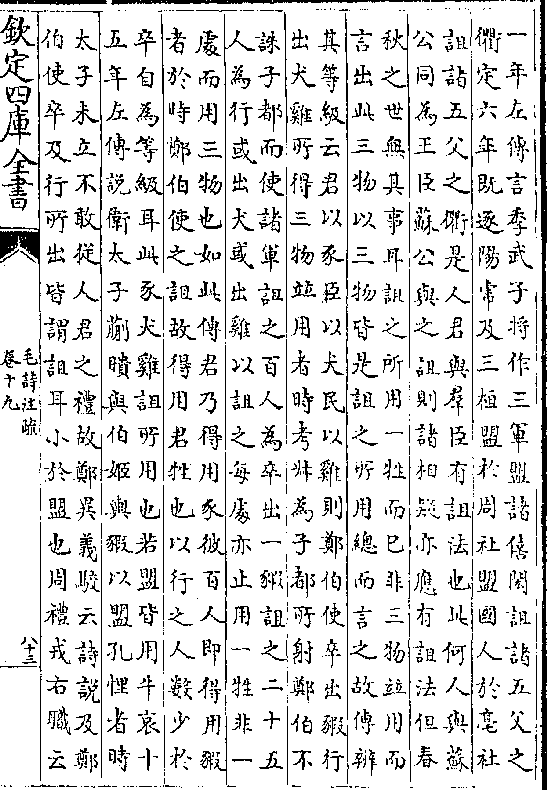 一年左傳言季武子將作三軍盟諸僖閎詛諸五父之
衢定六年既逐陽常及三桓盟於周社盟國人於亳社
詛諸五父之衢是人君與羣臣有詛法也此何人與蘇
公同為王臣蘇公與之詛則諸相疑亦應有詛法但春
秋之世無其事耳詛之所用一牲而已非三物並用而
言出此三物以三物皆是詛之所用總而言之故傳辨
其等級云君以豕臣以犬民以雞則鄭伯使卒出豭行
出犬雞所得三物竝用者時考叔為子都所射鄭伯不
誅子都而使諸軍詛之百人為卒出一豭詛之二十五
人為行或出犬或出雞以詛之每處亦止用一牲非一
處而用三物也如此傳君乃得用豕彼百人即得用豭
者於時鄭伯使之詛故得用君牲也以行之人數少於
卒自為等級耳此豕犬雞詛所用也若盟皆用牛哀十
五年左傳説衛太子蒯聵與伯姬輿豭以盟孔悝者時
太子未立不敢從人君之禮故鄭異義駮云詩説及鄭
伯使卒及行所出皆謂詛耳小於盟也周禮戎右職云
欽定四庫全書
毛詩注疏
卷十九
八十三